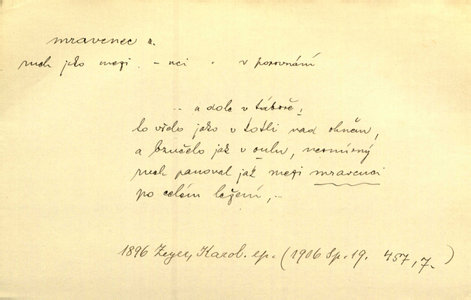 mravenec m.
ruch jako mezi – nci · v porovnání
.. a dole v táboře
to vřelo jako v kotli nad ohněm,
a bzučelo jak v oulu, nesmírný
ruch panoval jak mezi mravenci
po celém ležení, ..
1896 Zeyer, Karol. ep. (1906 Sp. 19. 457, 7.)